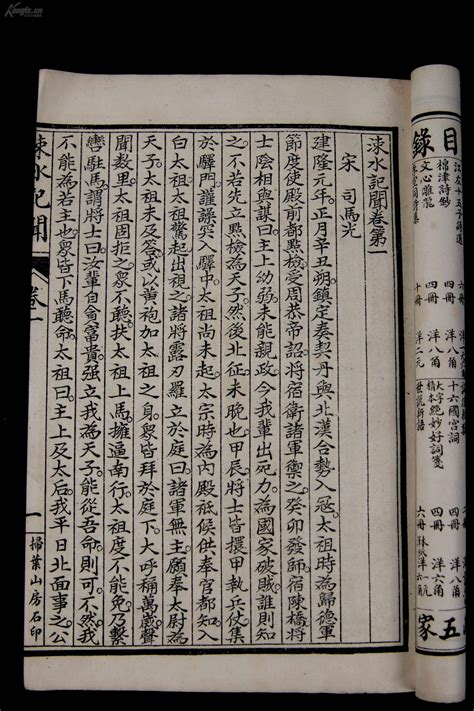 Kongfz.cn
涑水記聞卷第一
宋　司馬光
建隆元年正月辛丑朔鎮定奏契丹與北漢合勢入寇太祖時為歸德軍
節度使殿前都點檢受周恭帝詔將宿衛諸軍禦之癸卯發師宿陳橋將
士陰相與謀曰主上幼弱未能親政今我輩出死力為國家破賊誰則知
之不若先立點檢為天子然後北征未晚也甲辰將士皆擐甲執兵仗集
於驛門讙譟突入驛中太祖尚未起太宗時為內殿祗候供奉官都知入
白太祖太祖驚起出視之諸將露刃羅立於庭曰諸軍無主願奉太尉為
天子太祖未及答或以黃袍加太祖之身眾皆拜於庭下大呼稱萬歲聲
聞數里太祖固拒之眾不聽扶太祖上馬擁逼南行太祖度不能免乃繫
轡駐馬謂將士曰汝輩自貪富貴强立我為天子能從吾命則可不然我
不能為若主也眾皆下馬聽命太祖曰主上及太后我平日北面事之公
涑水記聞
卷一
一
掃葉山房石印
目錄
江左十五子詩選
棉津詩鈔　四冊　洋八角
文心雕龍　四冊　洋八角
十冊　洋二元
十六國宮詞
大字絕妙好詞箋　四冊
精本
世說新語　六冊
五
家